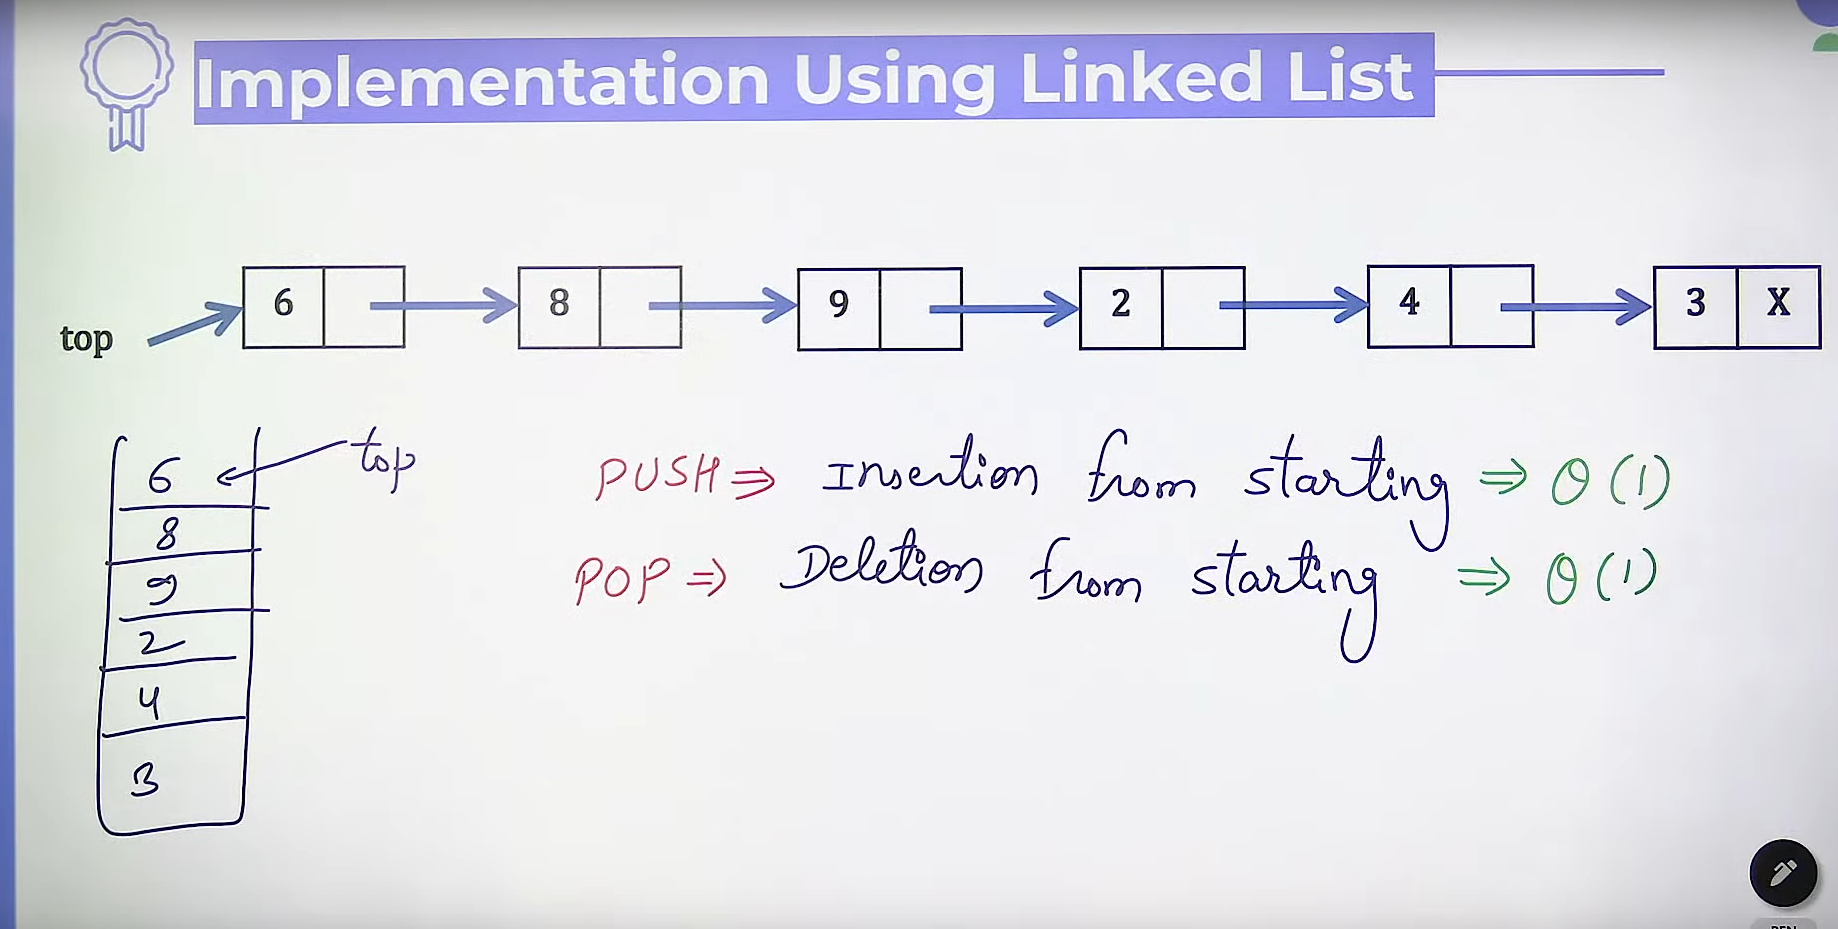 Implementation Using Linked List
top 6 8 9 2 4 3 X
6 top
8
9
2
4
3
PUSH ⇒ Insertion from starting ⇒ O(1)
POP ⇒ Deletion from starting ⇒ O(1)